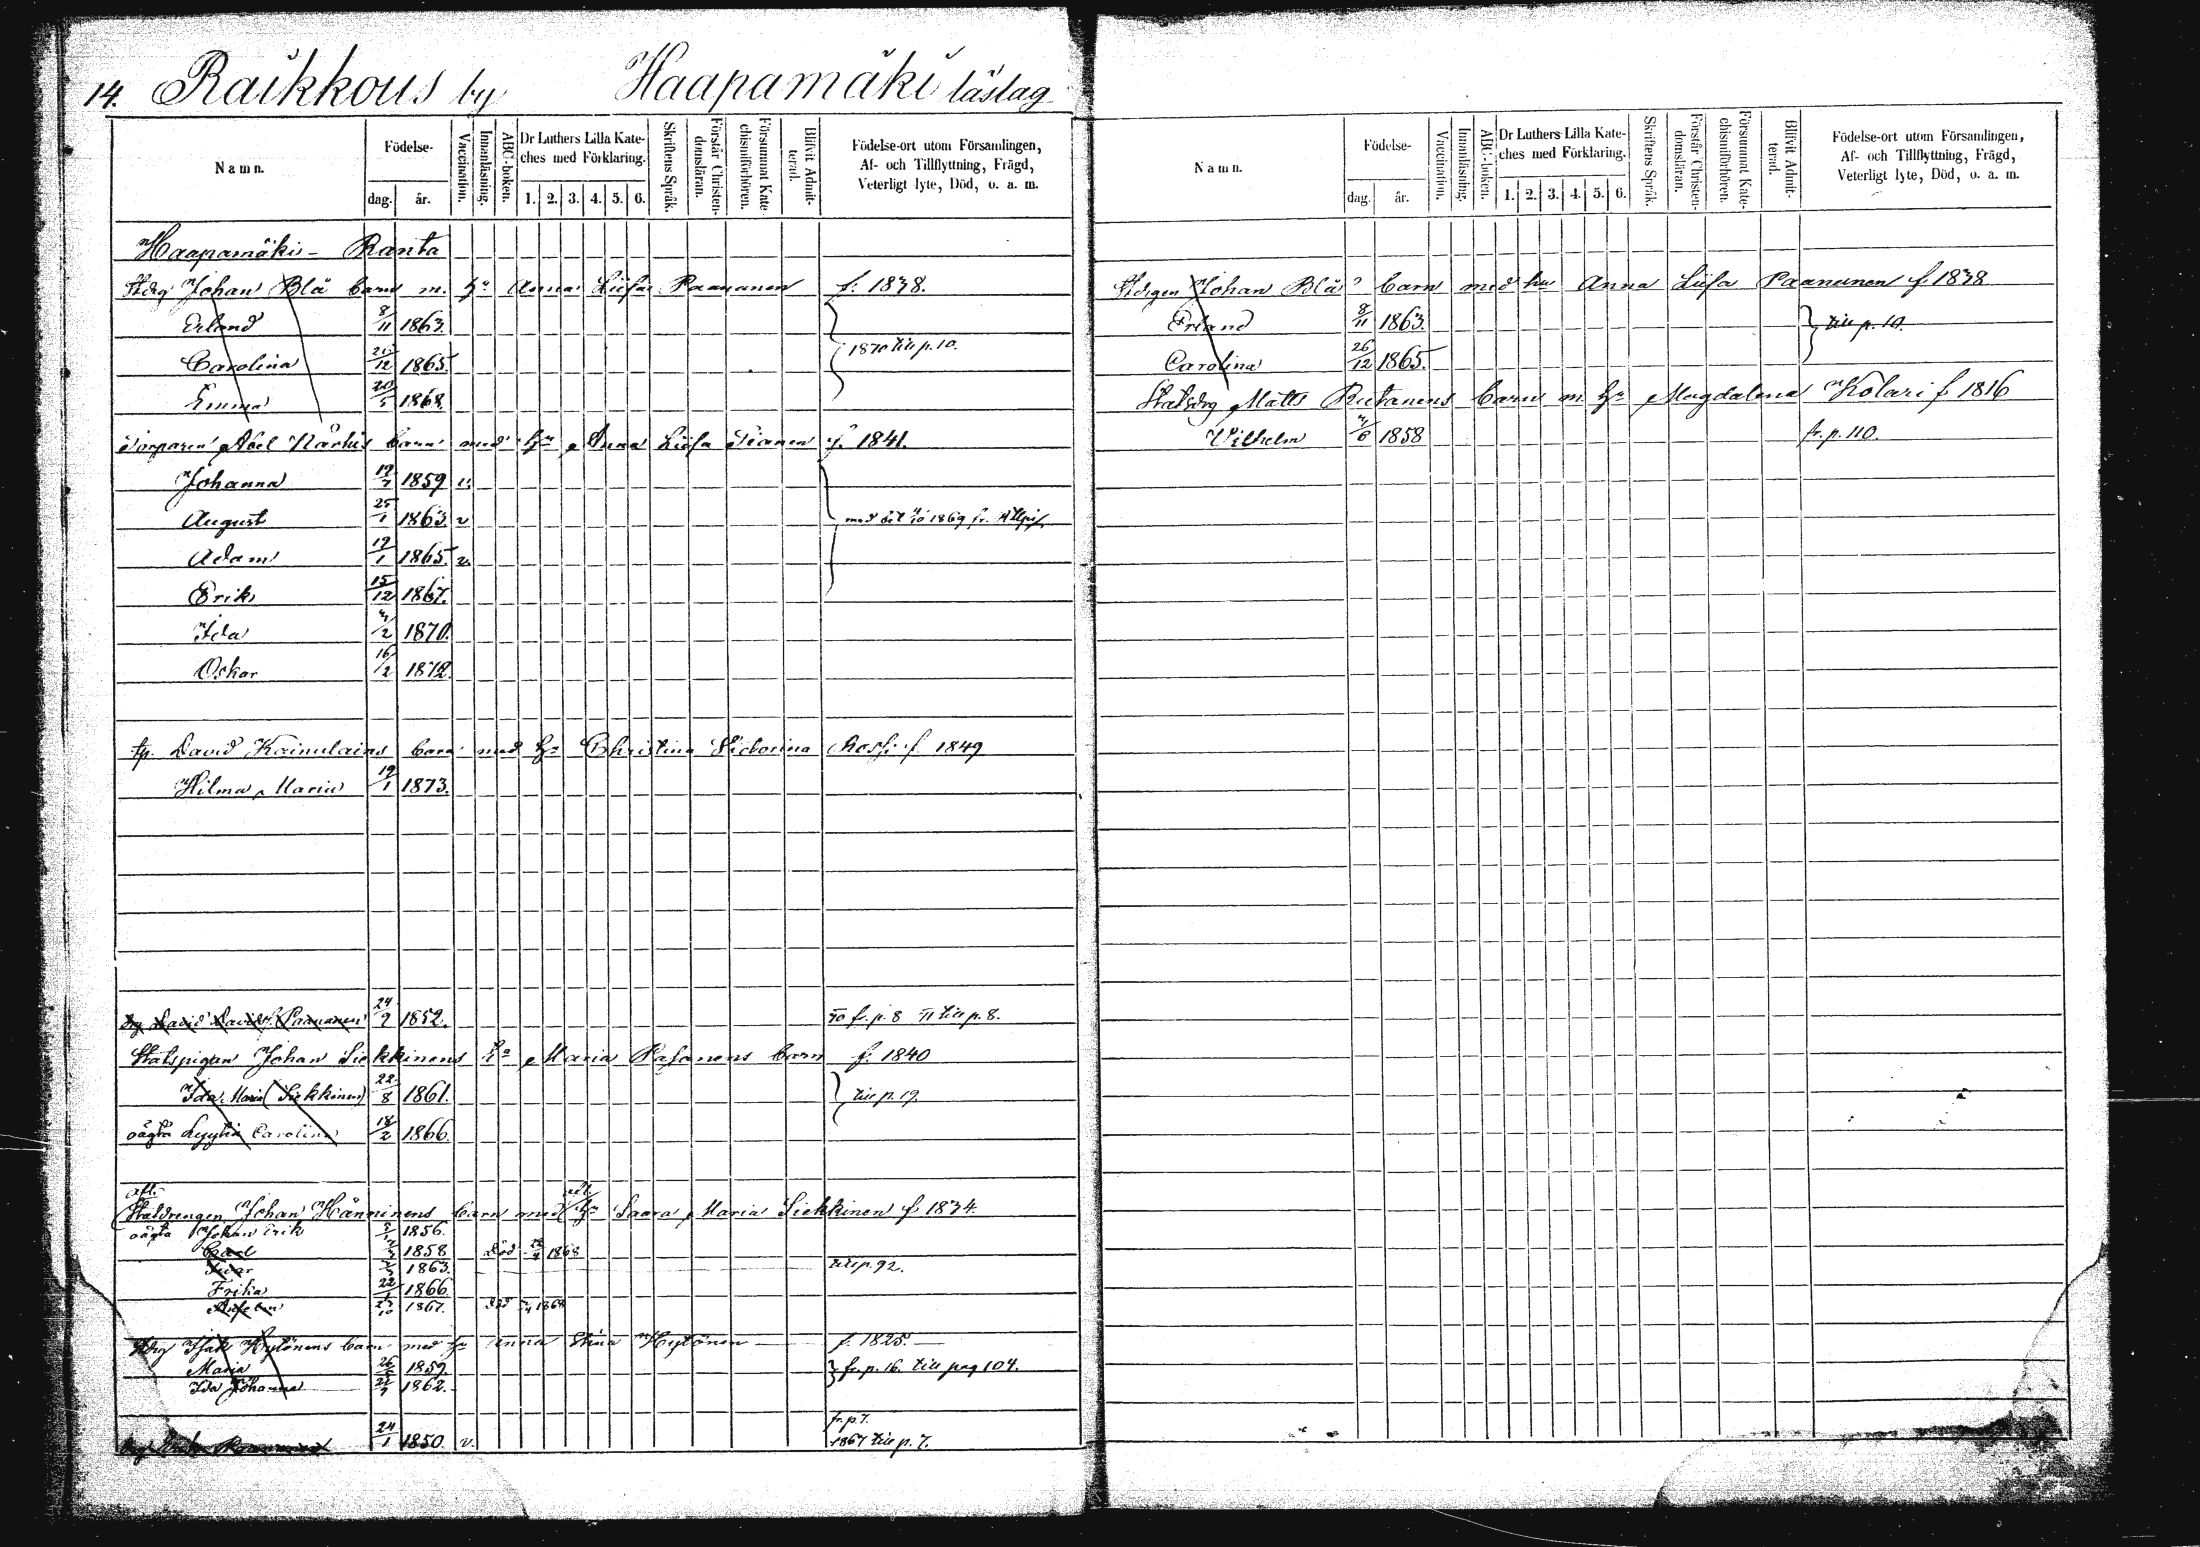 14. Raikkous by Haapamäki läslag
Namn. Födelse- dag. år. Vaccination. Innanläsning. ABC-boken. Dr Luthers Lilla Kateches med Förklaring. 1. 2. 3. 4. 5. 6. Skriftens Språk. Förstår Christendomsläran. Försummat Katechismiförhören. Blifvit Admitterad. Födelse-ort utom Församlingen, Af- och Tillflyttning, Frägd, Veterligt lyte, Död, o. a. m.
Haapamäki - Ranta
Johan Blå barn m. hu Anna Liisa Paananen f. 1838.
Erland 8/11 1863.
Carolina 26/12 1865. 1870 till p. 10.
Emma 20/5 1868.
Torparen Abel Närhis barn med hu Anna Liisa f. 1841.
Johanna 1859 v.
August 25/1 1863 v med bet 1869 fr.
Adam 1865. v.
Erik 15/12 1867.
Ida 1870.
Oskar 16/2 1872.
tp. David Kainulains barn med hu Christina Victorina f. 1849
Hilma Maria 19/1 1873.
drg David Davids. Paananen 24/9 1852. fr. p. 8 till p. 8.
Statspigan Johan Siekkinens hu Maria Pasanens barn f. 1840
Ida Maria (Siekkinen) 22/8 1861. till p. 19.
oägta Lyytia Carolina 18/2 1866.
afl.
Statdrengen Johan Hänninens barn med hu Saara Maria Siekkinen f 1834.
oägta Johan Erik 1856.
Carl 1858 Död 1868
Ivar 1863. till p. 92.
Frika 22/1 1866
1867. död 1868
Isak Hytönens barn med hu Anna Stina Hytönen f. 1825.
Maria 26/2 1859. fr. p. 16. till pag 104.
Ida Johanna 1862.
fr. p. 7.
24/1 1850 v. 1867 till p. 7.
Namn. Födelse- dag. år. Vaccination. Innanläsning. ABC-boken. Dr Luthers Lilla Kateches med Förklaring. 1. 2. 3. 4. 5. 6. Skriftens Språk. Förstår Christendomsläran. Försummat Katechismiförhören. Blifvit Admitterad. Födelse-ort utom Församlingen, Af- och Tillflyttning, Frägd, Veterligt lyte, Död, o. a. m.
Johan Blås barn med hu Anna Liisa Paananen f. 1838
Erland 8/11 1863. till p. 10.
Carolina 26/12 1865.
Statsdrg Matts Rutanens barn m. hu Magdalena Kolari f 1816
Vilhelm 1858 fr. p. 110.